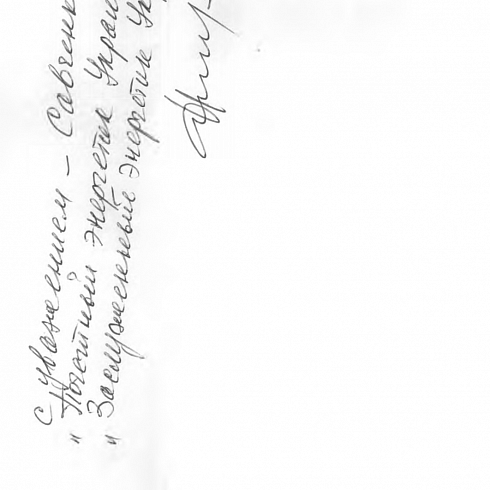 С уважением – Савченк
" Почётный энергетик Украи
" Заслуженный энергетик Ук